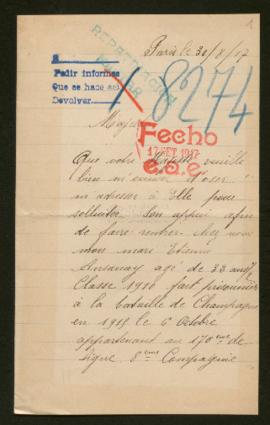 Paris le 30/8/17
Pedir informes
Que se hace así
Devolver
8274
Majesté
Fecho
17 SET. 1917
Que votre Majesté veuille
bien m'excuser d'oser
m'adresser à Elle pour
solliciter son appui afin
de faire rentrer chez moi
mon mari Etienne
agé de 33 ans
Classe 1910 fait prisonnier
à la bataille de Champagne
en 1915 le 6 Octobre
appartenant au 170ème de
ligne 8ème Compagnie